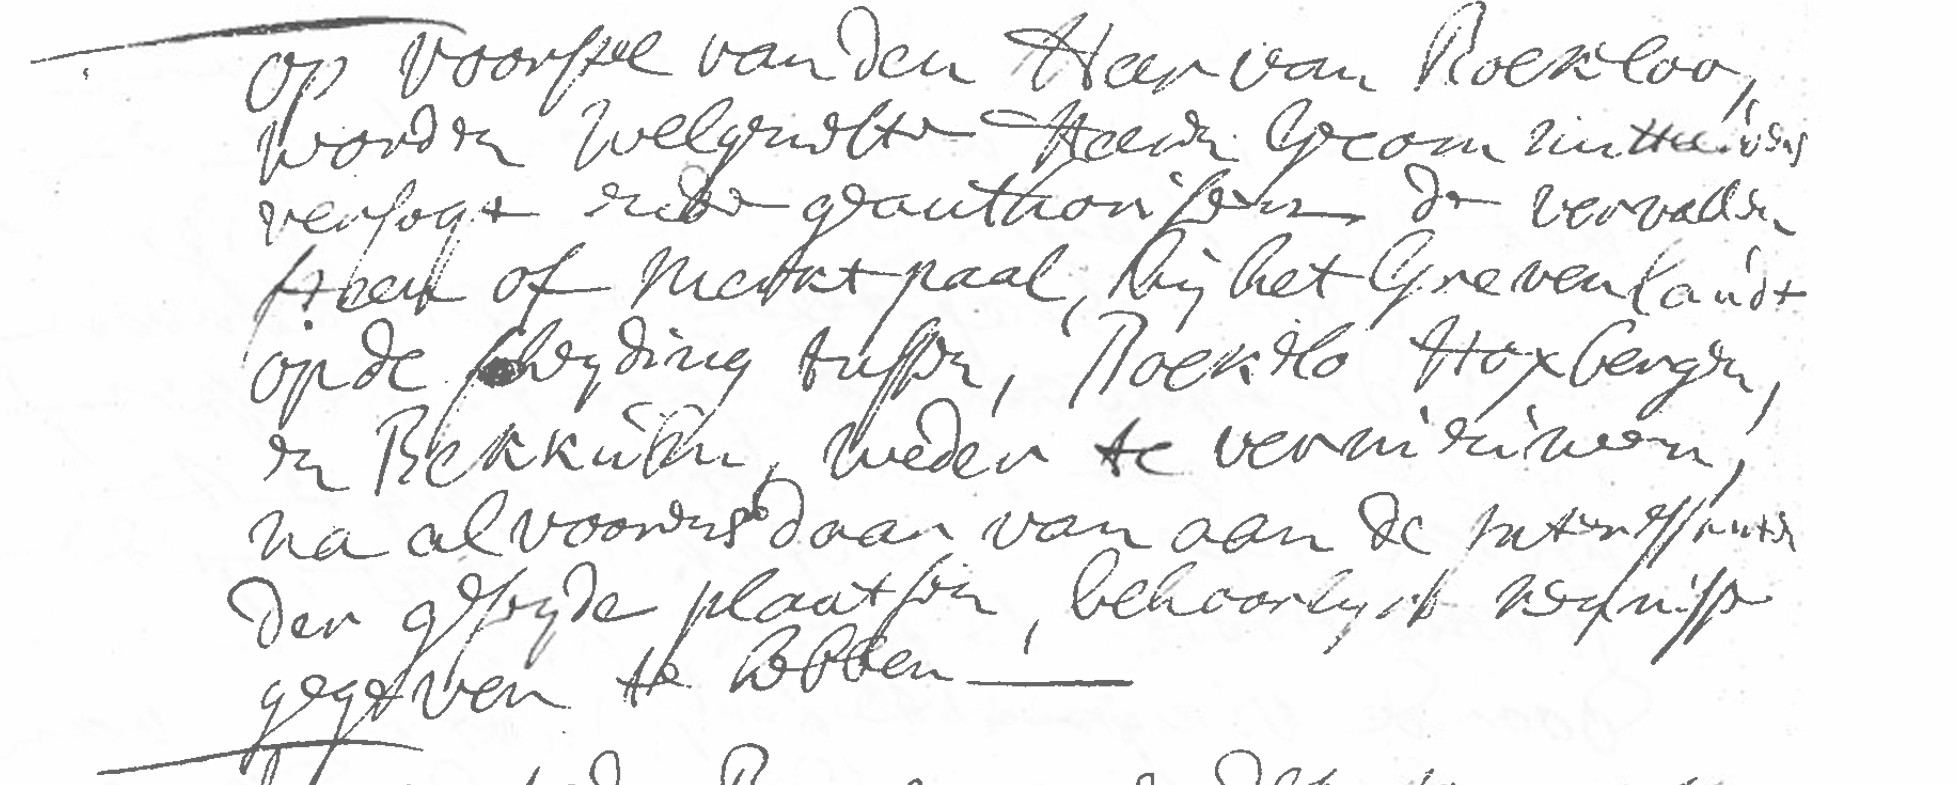 op voorstel van den Heer van Roekloo,
worden welgemelte Heeren Gecommitteerdens
versogt ende geauthoriseert de vervallen
Heck of Merkt paal, bij het Grevenlandt
op de scheyding tussen, Roekelo Hoxbergen,
en Bekkum, weder te vernieuwen,
na alvoorens daar van aan de interessenten
der geseyde plaatsen, behoorlyck kennisse
gegeven te hebben